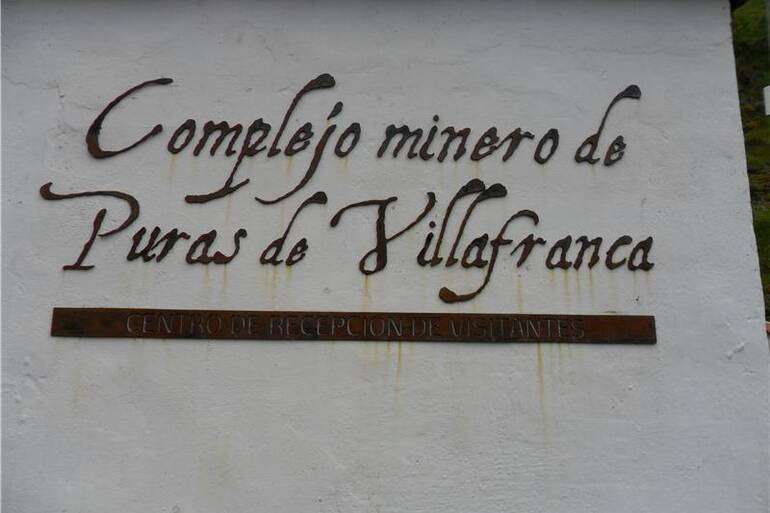 Complejo minero de
Puras de Villafranca
CENTRO DE RECEPCION DE VISITANTES